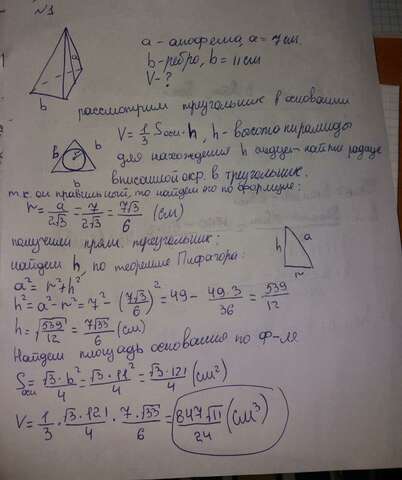 №1
a - апофема, a = 7 см.
b - ребро, b = 11 см
V - ?
a
b
рассмотрим треугольник в основании
V = 1/3 Sосн · h, h - высота пирамиды
для нахождения h найти радиус
вписанной окр. в треугольник.
b b
b
т.к. он правильный, то найдём его по формуле:
r = a/2√3 = 7/2√3 = 7√3/6 (см)
получаем прям. треугольник:
h a
r
найдём h, по теореме Пифагора:
a² = r² + h²
h² = a² - r² = 7² - (7√3/6)² = 49 - 49·3/36 = 539/12
h = √539/12 = 7√33/6 (см)
Найдём площадь основания по ф-ле
Sосн = √3·b²/4 = √3·11²/4 = √3·121/4 (см²)
V = 1/3 · √3·121/4 · 7·√33/6 = 847√11/24 (см³)